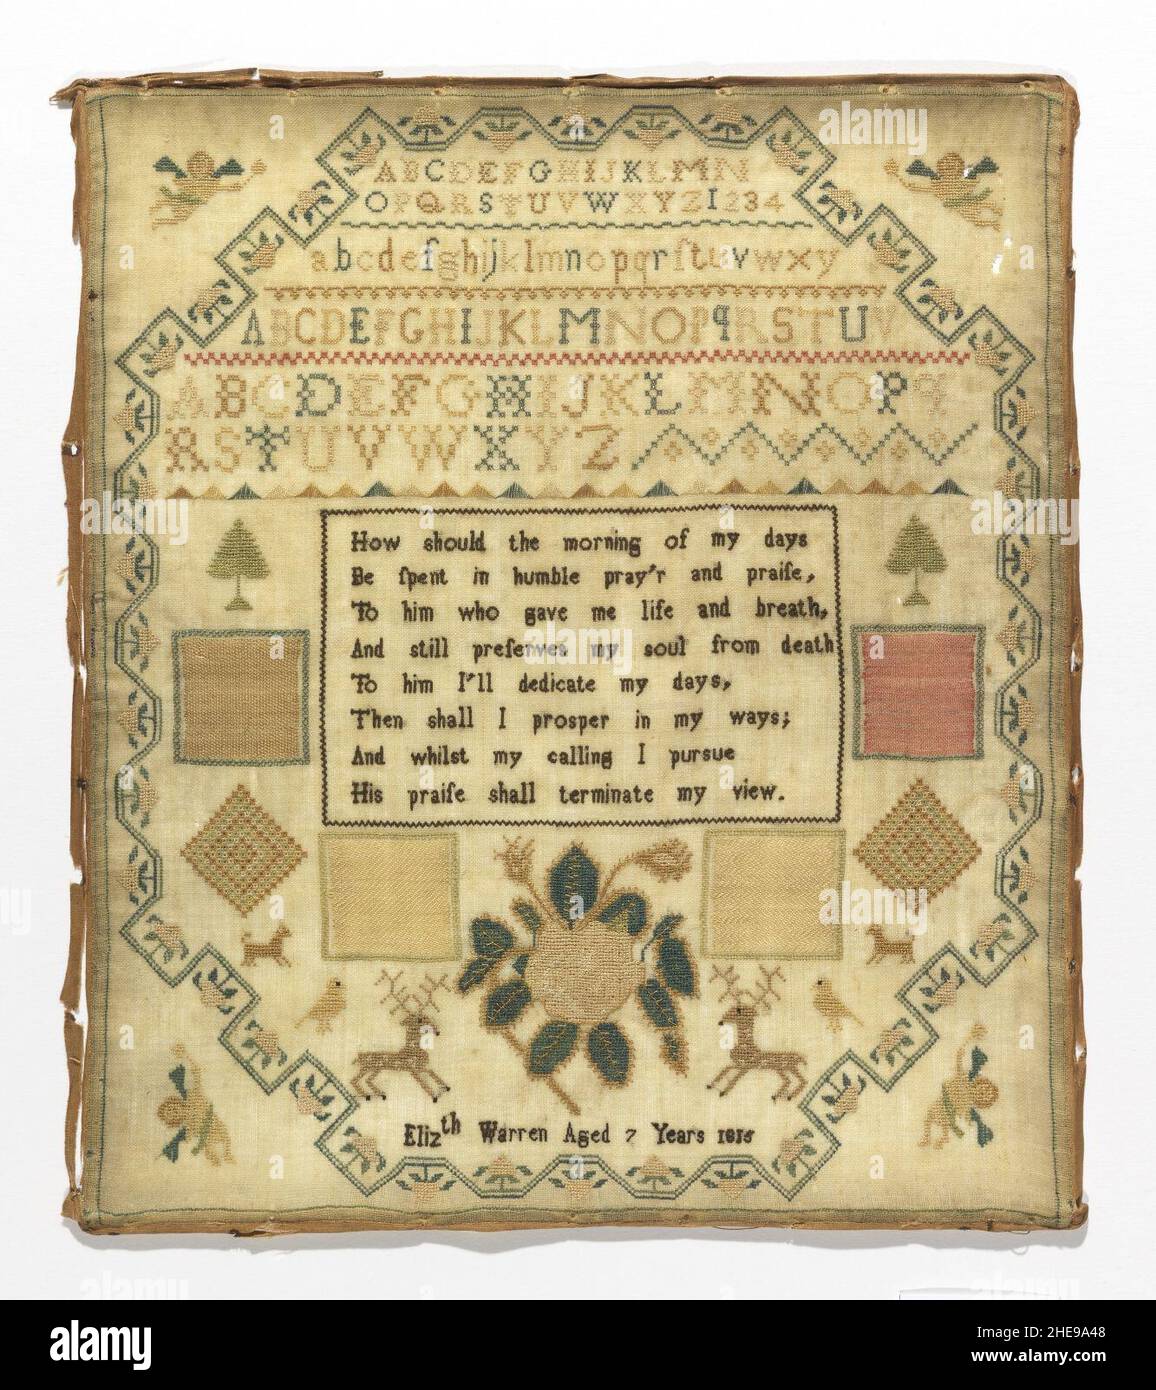 ABCDEFGHIJKLMN
OPQRSTUVWXYZ1234
abcdefghijklmnopqrſtuvwxy
ABCDEFGHIJKLMNOPqRSTUV
ABCDEFGHIJKLMNOPq
RSTUVWXYZ
How should the morning of my days
Be ſpent in humble pray'r and praiſe,
To him who gave me life and breath,
And still preſerves my soul from death
To him I'll dedicate my days,
Then shall I prosper in my ways;
And whilst my calling I pursue
His praiſe shall terminate my view.
Elizth Warren Aged 7 Years 1815
alamy
Image ID: 2HE9A48
www.alamy.com